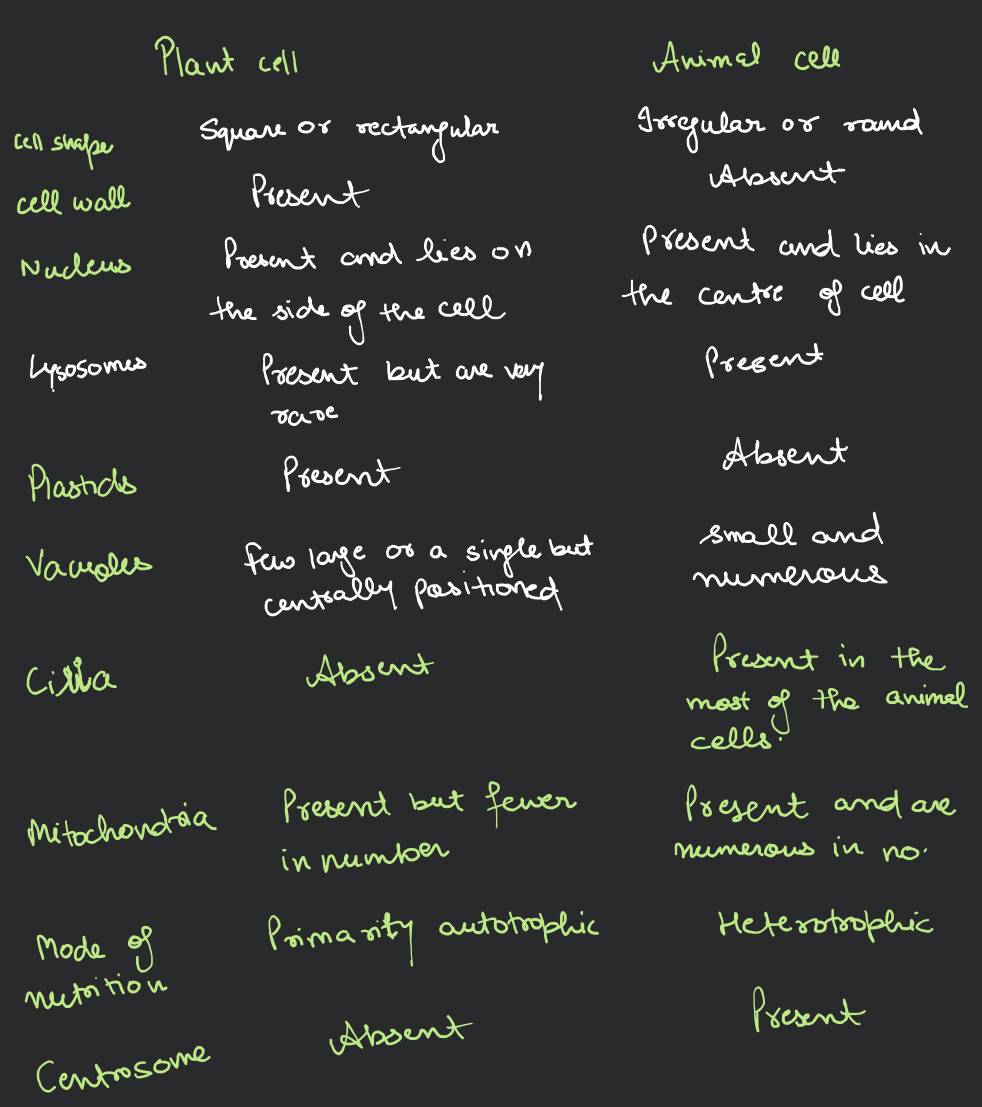 Plant cell Animal cell
cell shape Square or rectangular Irregular or round
cell wall Present Absent
Nucleus Present and lies on Present and lies in
the side of the cell the centre of cell
Lysosomes Present but are very Present
rare
Plastids Present Absent
Vacuoles few large or a single but small and
centrally positioned numerous
Cilia Absent Present in the
most of the animal
cells.
Mitochondria Present but fewer Present and are
in number numerous in no.
Mode of Primarity autotrophic Heterotrophic
nutrition
Centrosome Absent Present